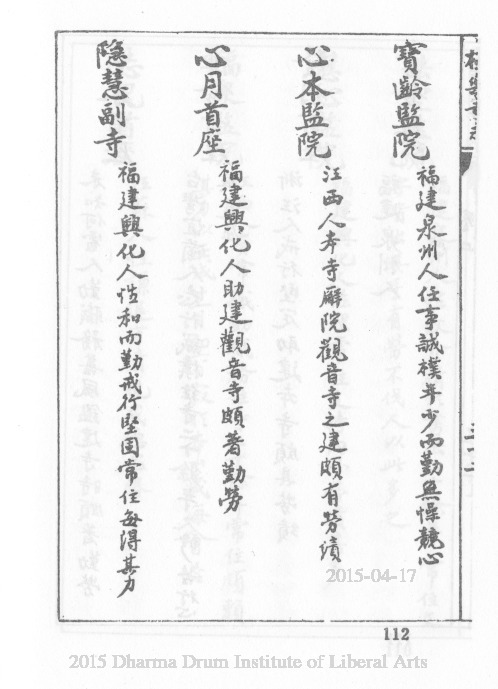 寶齡監院
福建泉州人任事誠樸年少而勤無懆競心
心本監院
江西人本寺廨院觀音寺之建頗有勞績
心月首座
福建興化人助建觀音寺頗著勤勞
隱慧副寺
福建興化人性和而勤戒行堅固常住每得其力
2015-04-17
112
2015 Dharma Drum Institute of Liberal Arts